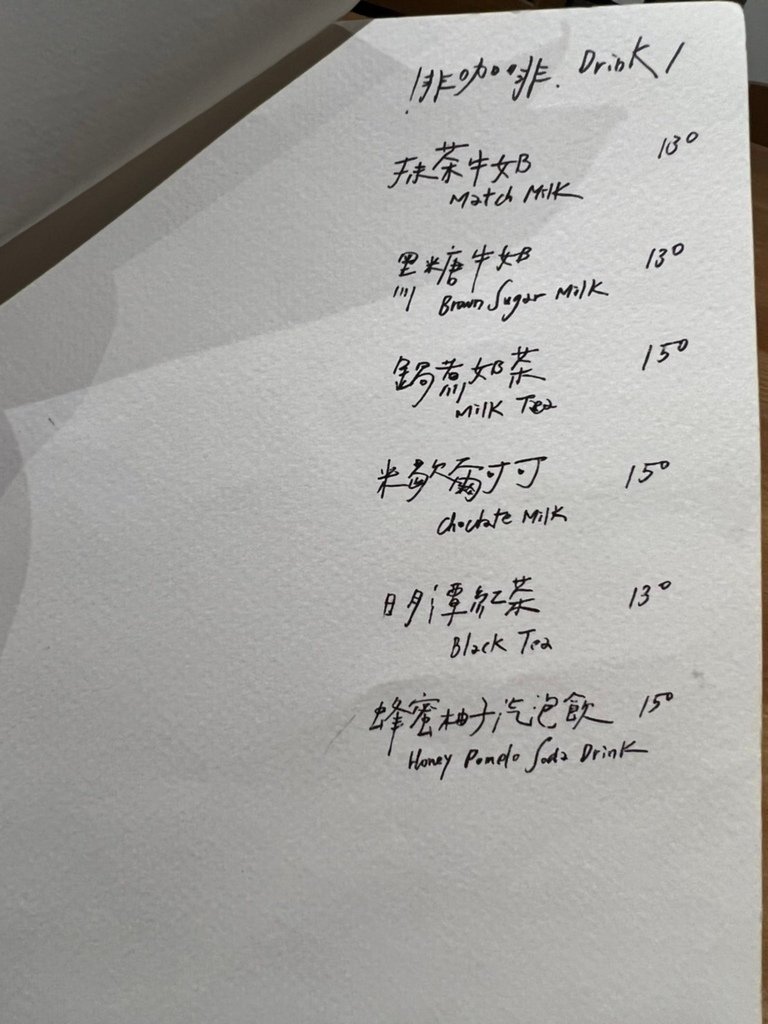 非咖啡. Drink
抹茶牛奶 130
Match Milk
黑糖牛奶 130
Brown Sugar Milk
鍋煮奶茶 150
Milk Tea
米歇爾可可 150
Choclate Milk
日月潭紅茶 130
Black Tea
蜂蜜柚子汽泡飲 150
Honey Pomelo Soda Drink